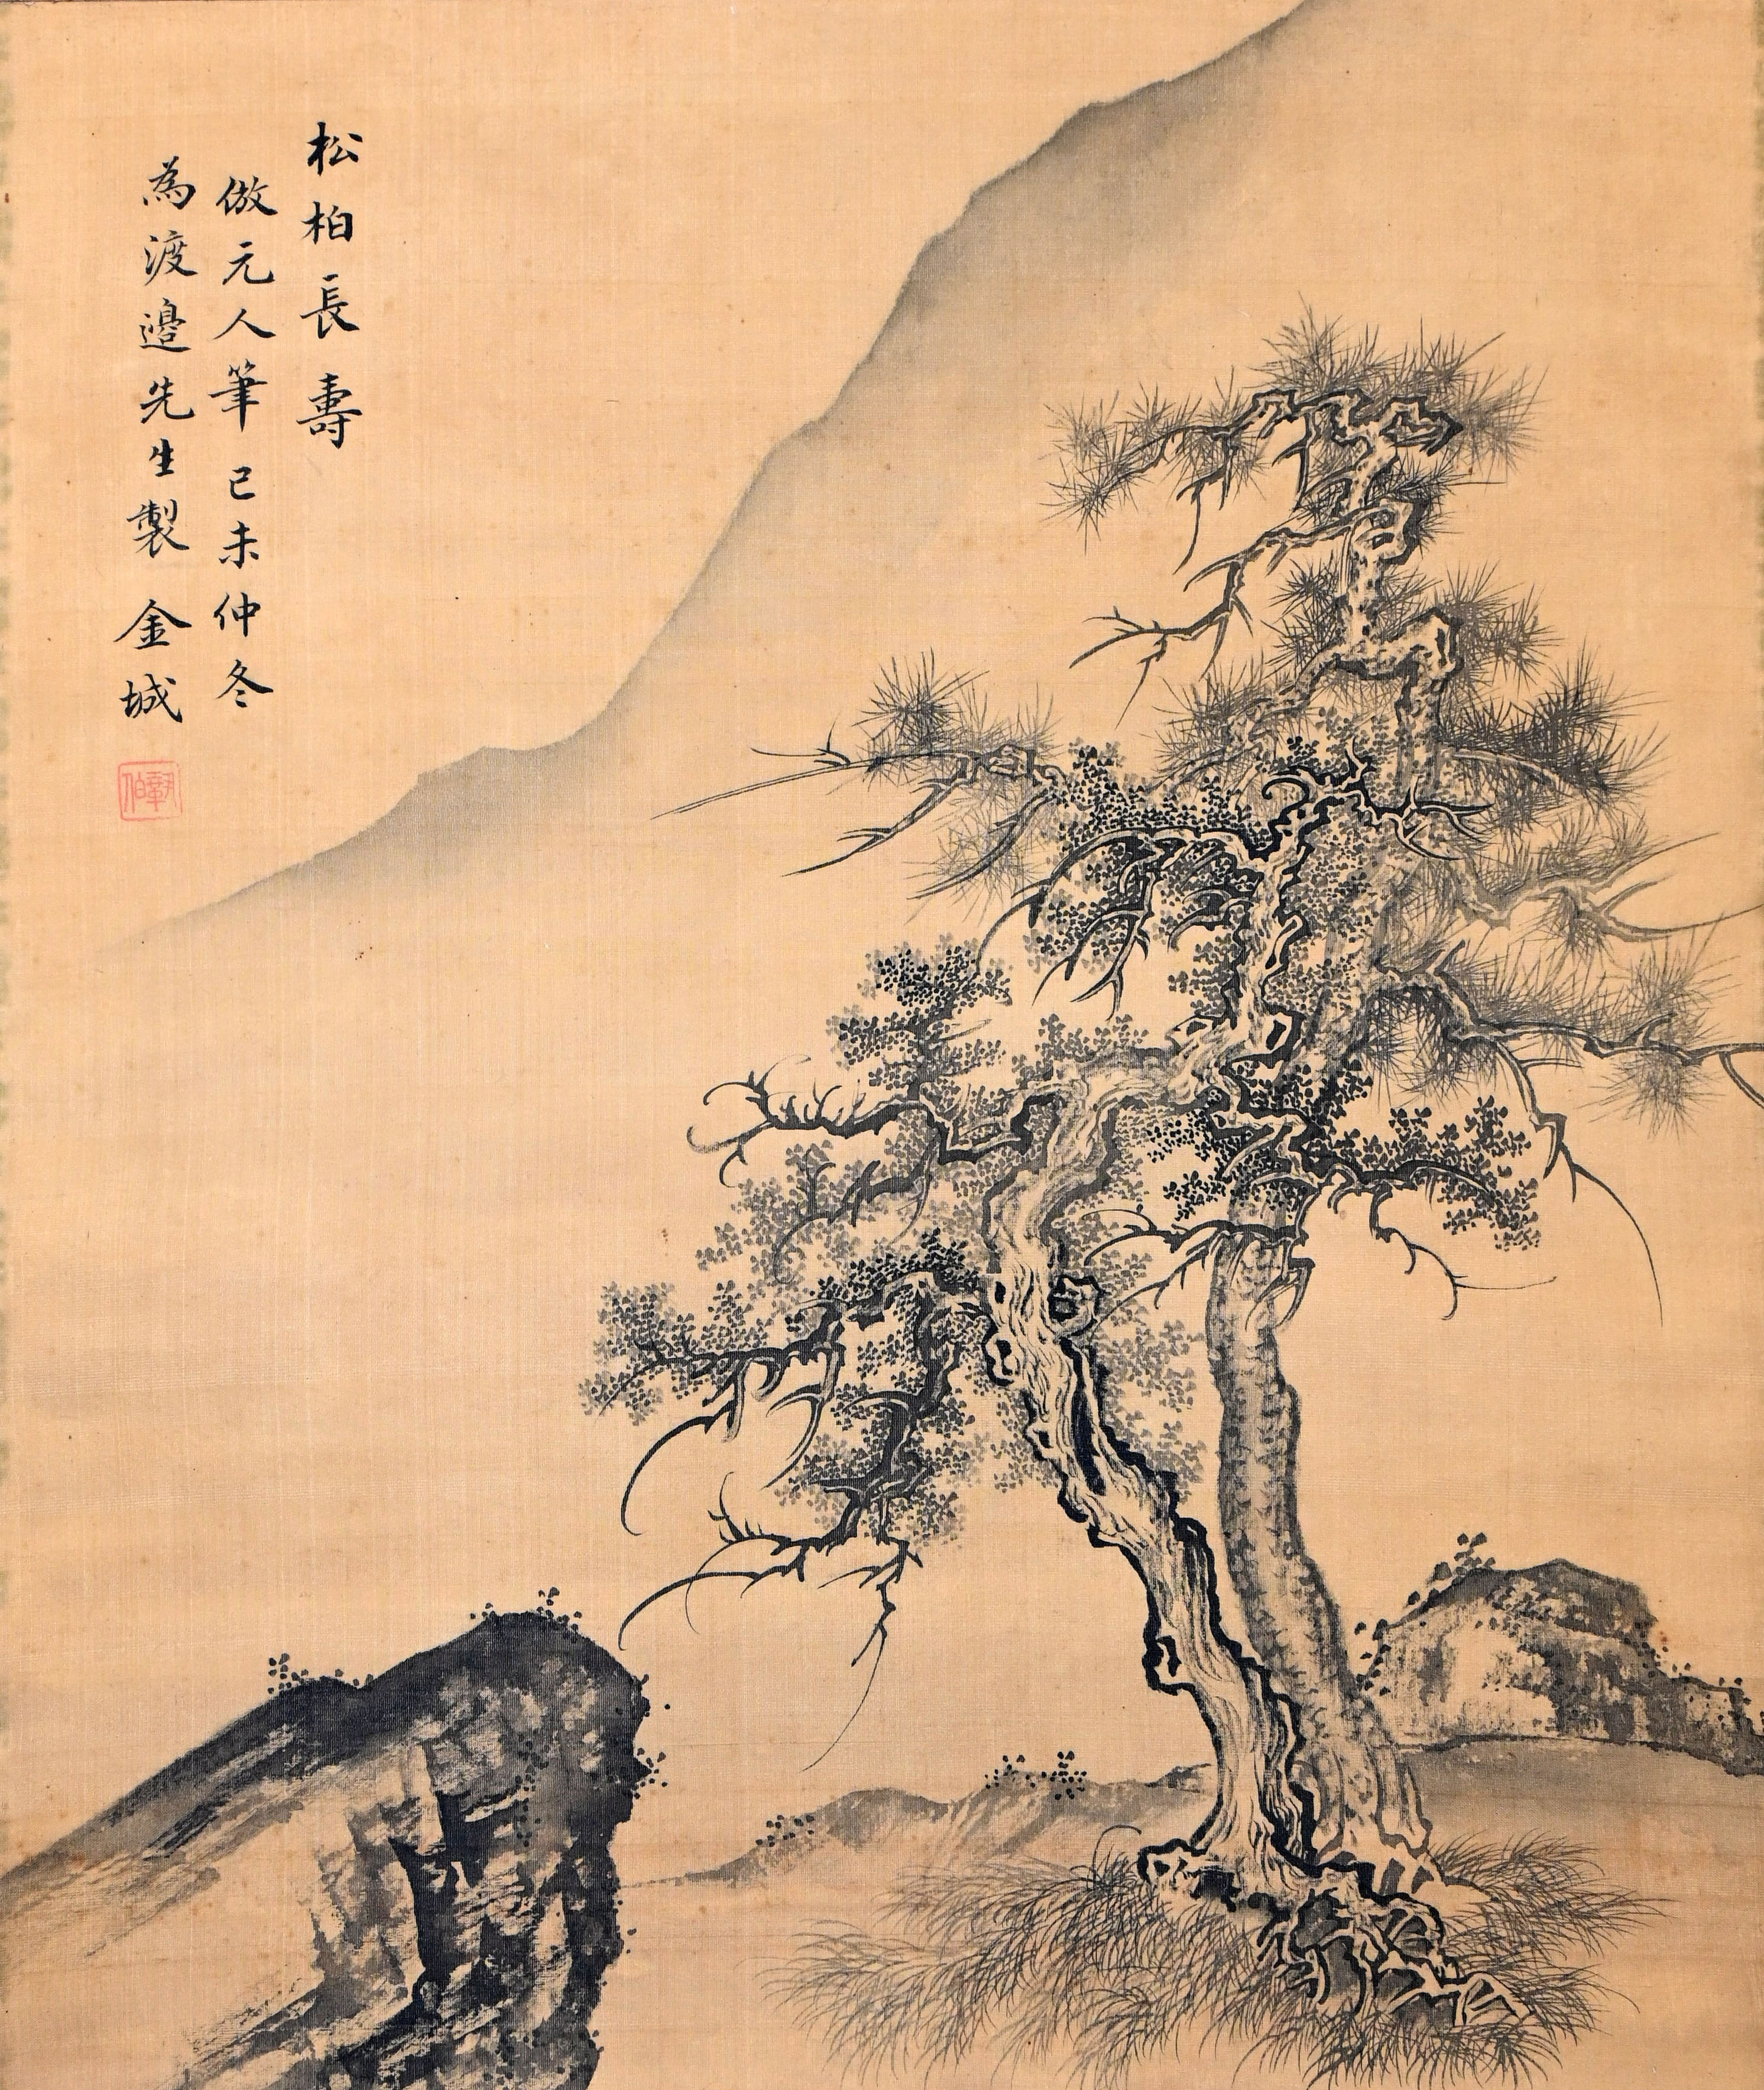 松柏長壽
倣元人筆 己未仲冬
為渡邊先生製 金城